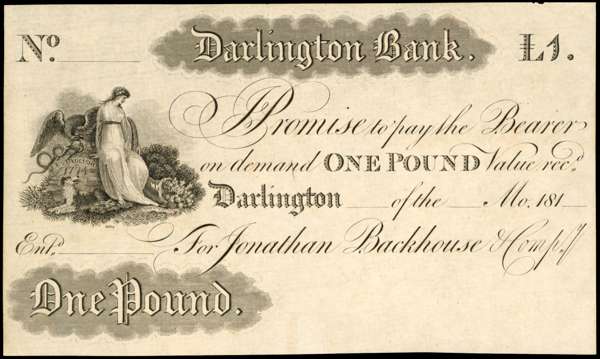 No. Darlington Bank. L1.
I Promise to pay the Bearer
on demand ONE POUND Value rec.d
Darlington of the Mo. 181
Ent.d For Jonathan Backhouse & Comp.y
One Pound.